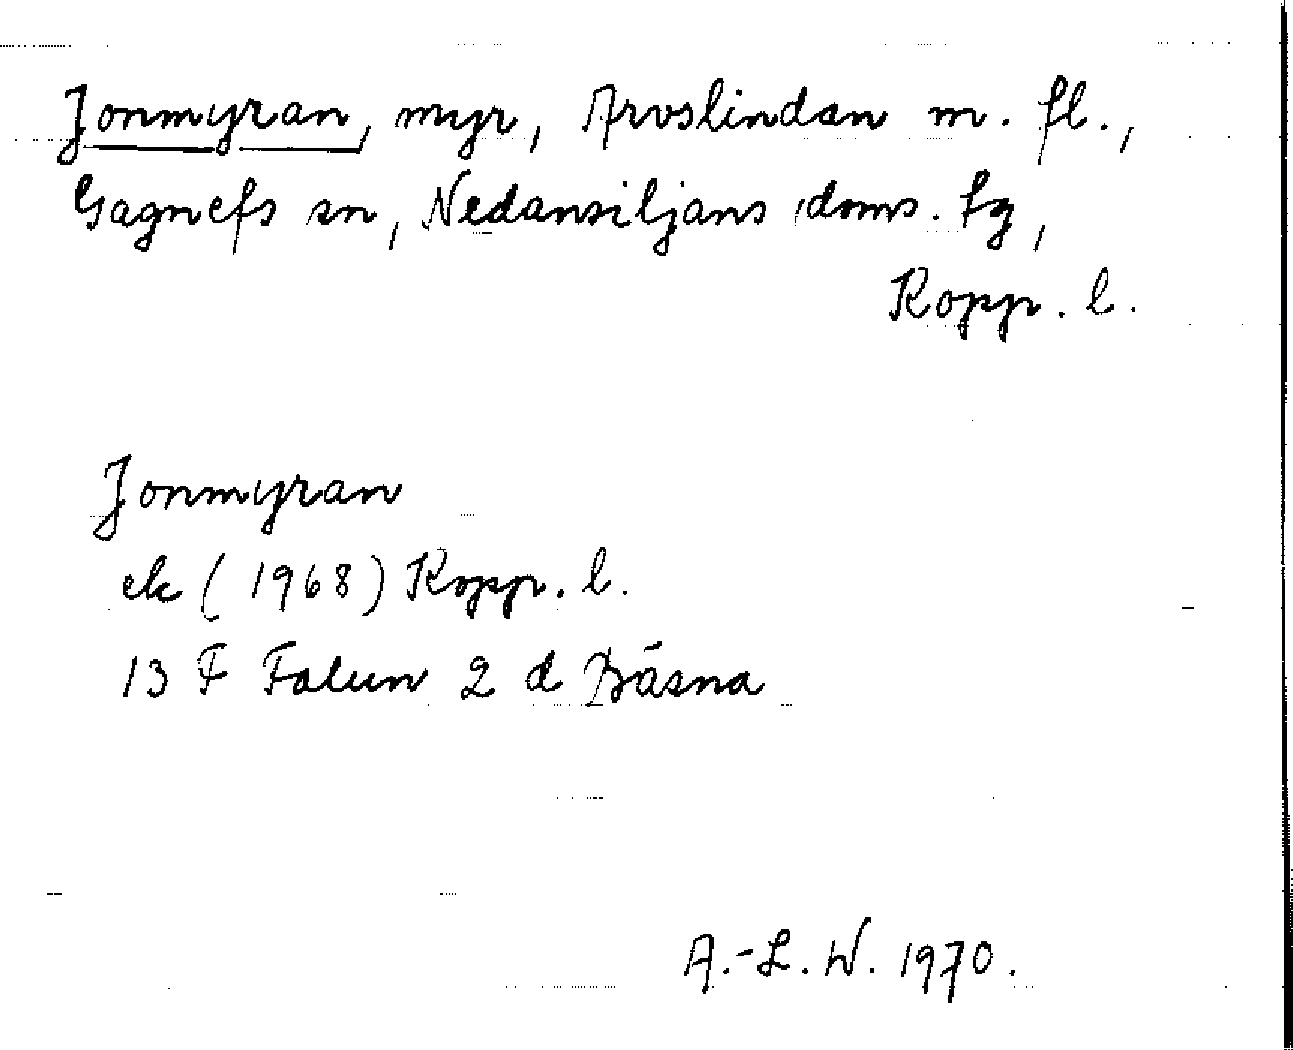 Jonmyran, myr, Arvslindan m. fl.,
Gagnefs sn, Nedansiljans doms. fg,
Kopp. l.
Jonmyran
ek (1968) Kopp. l.
13 F Falun 2 d Båsna
A.-L. W. 1970.